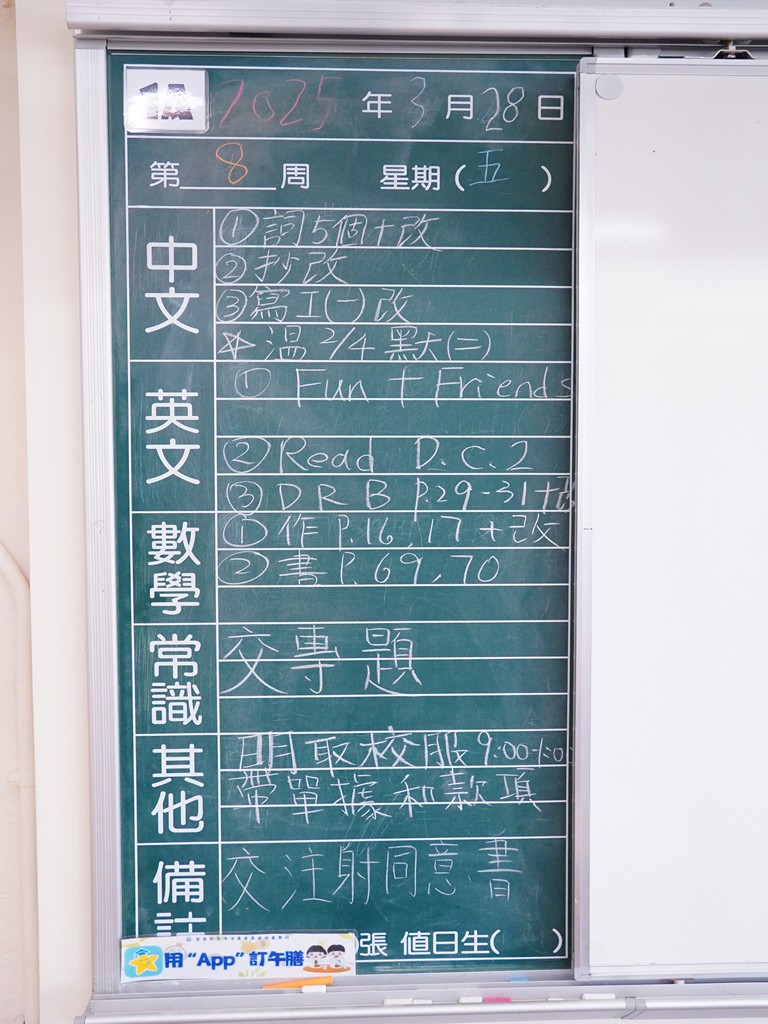 1A 2025 年 3 月 28 日
第 8 周 星期 ( 五 )
中文
①詞5個+改
②抄改
③寫工(一)改
☆溫 2/4 默(二)
英文
① Fun + Friends
② Read D.C.2
③ DRB P.29-31+改
數學
①作P.16, 17 +改
②書P.69, 70
常識
交專題
其他
取校服9:00-1:00
帶單據和款項
備註
交注射同意書
張 值日生( )
用“App”訂午膳